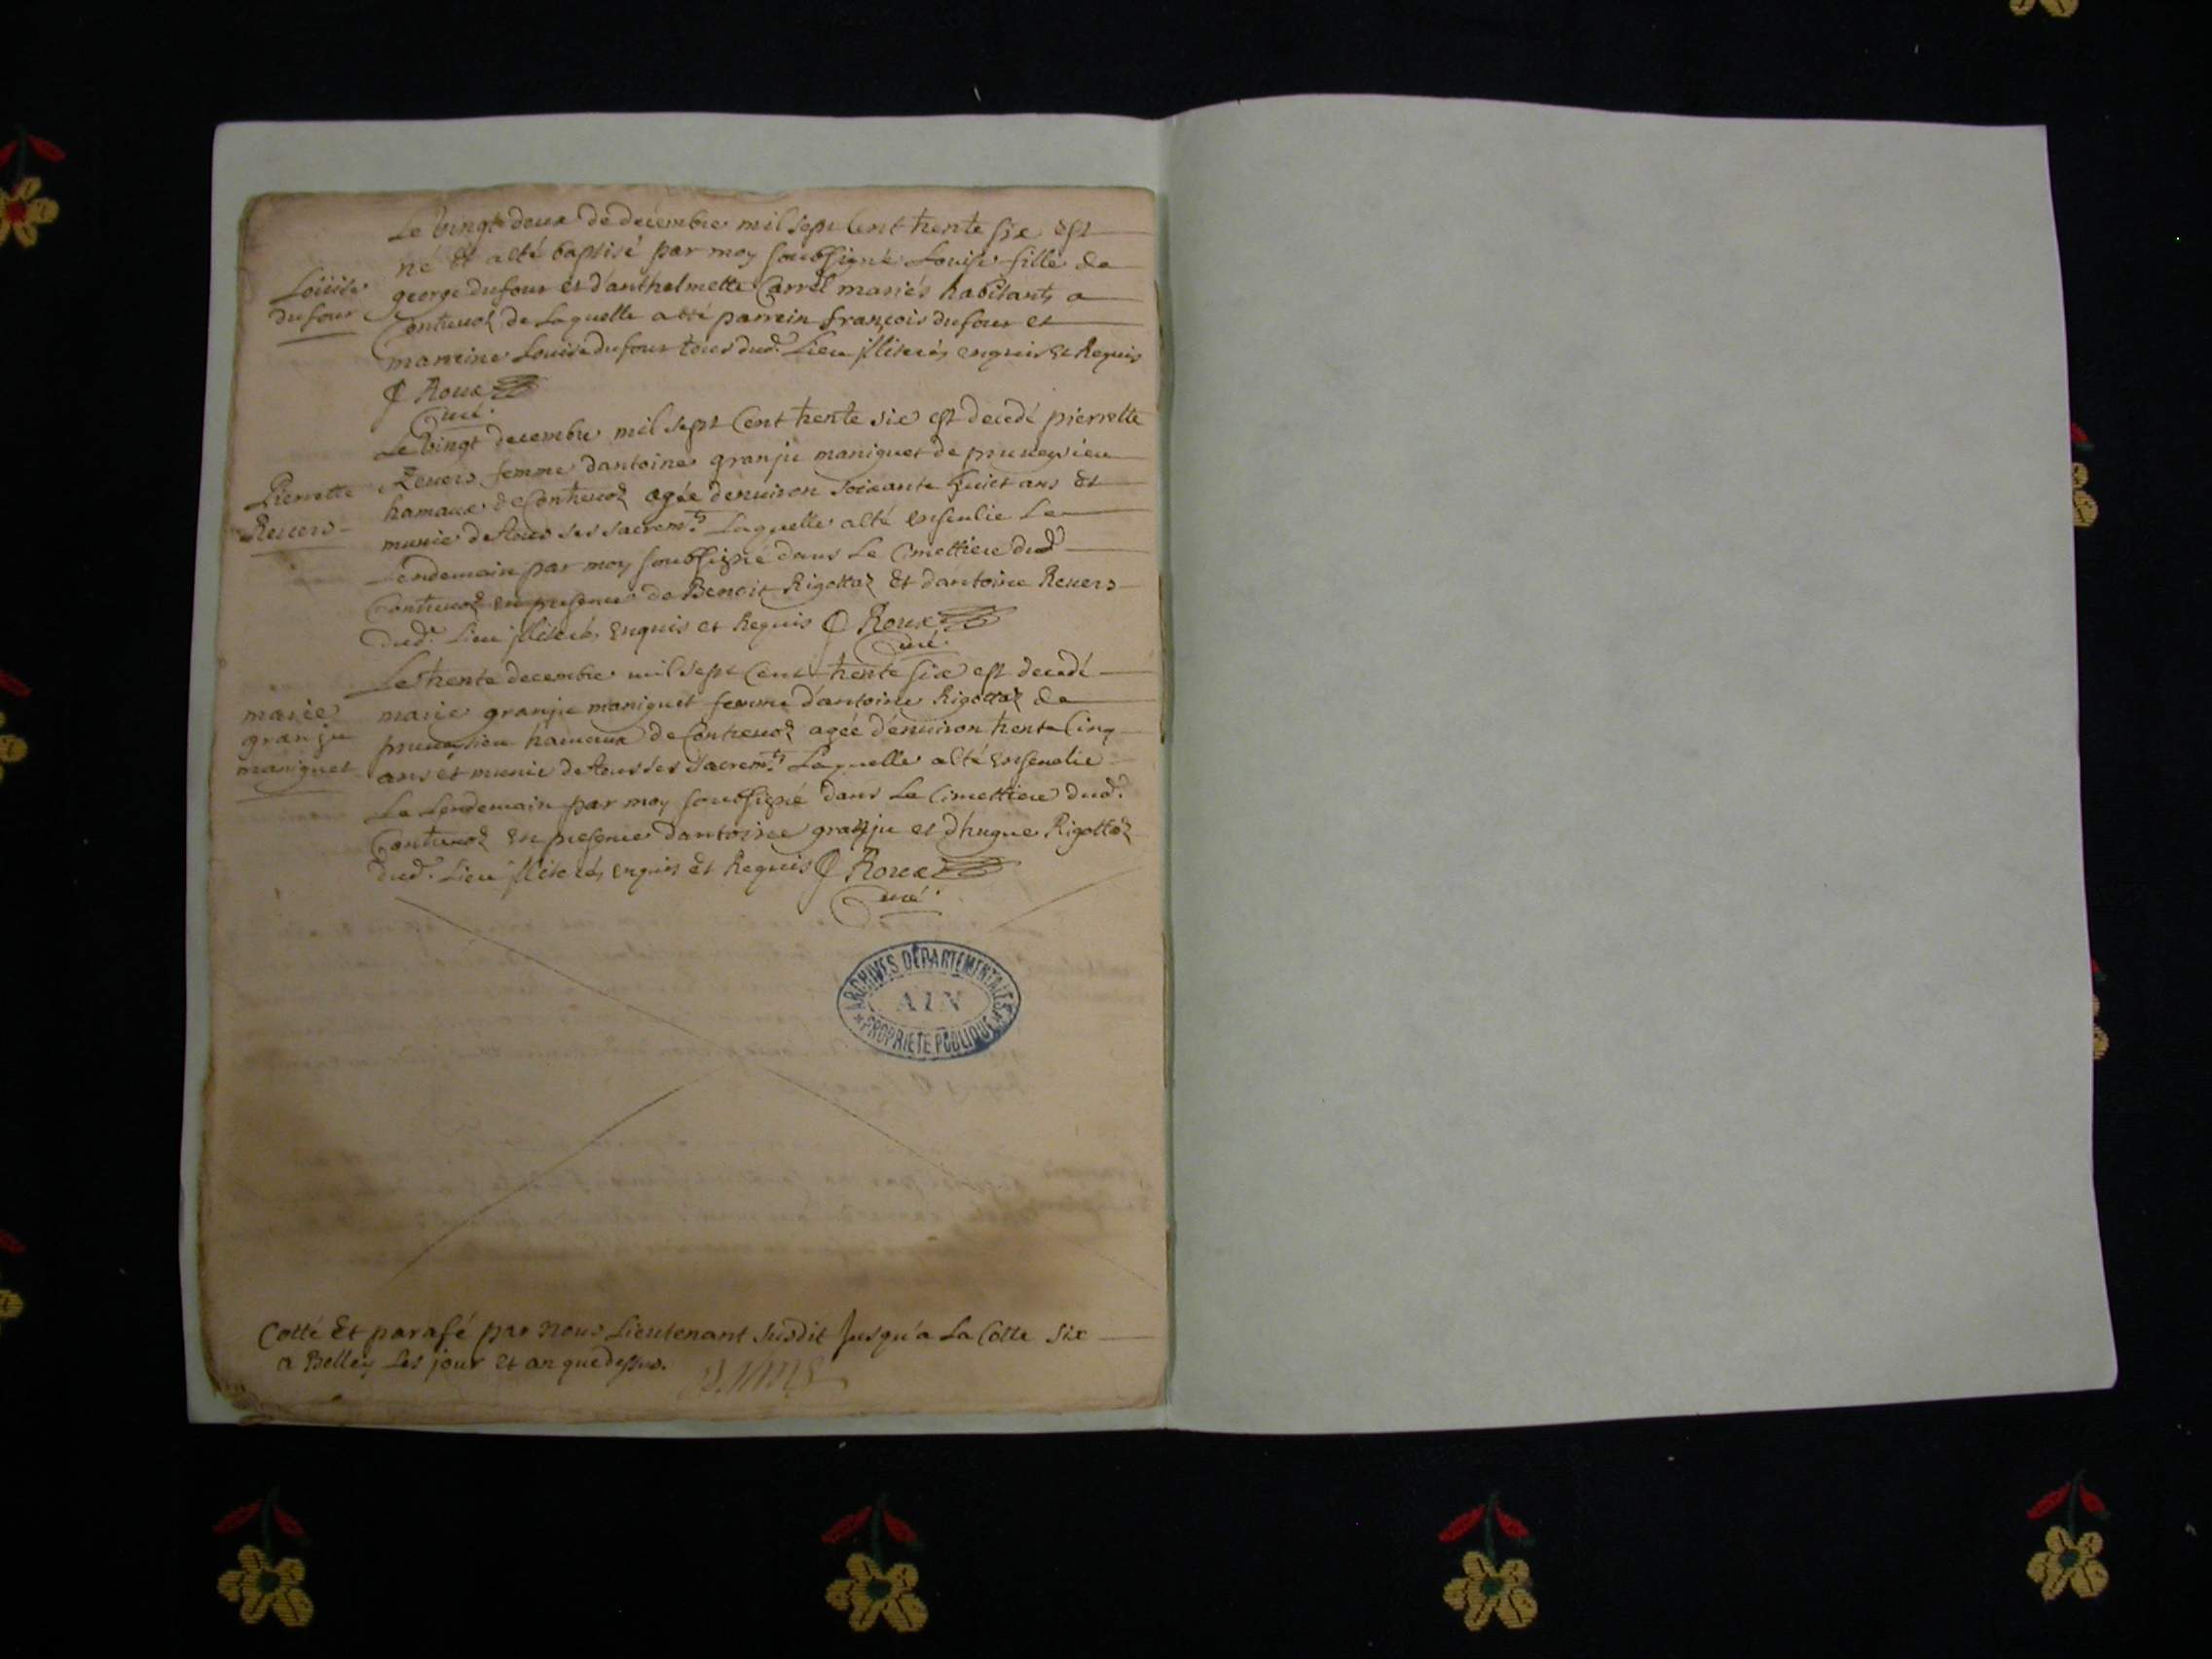 Le vingt deux de decembre mil sept Cent trente six est
né et a esté baptisé par moy soubsigné Louise fille de
Loüise
george dufour et d'anthelmette Carrel mariés habitants a
dufour
Contrevoz de Laquelle a eté parrein françois dufour et
mareine Louise dufour tous dud. Lieu jlliterés enquis Et Requis
Roux
Curé.
Le vingt decembre mil sept Cent trente six est decedé pierrette
Revers femme dantoine granju maniguet de pruveysieu
Pierrette
hamaux de Contrevoz agée denuiron soixante huict ans et
Reuers
munie de tous ses sacremts Laquelle a esté ensevelie Le
Lendemain par moy soubsigné dans Le Cimettiere dud
Contrevoz en presence de Benoit Rigottaz Et dantoine Reuers
dud. Lieu jlliterés Enquis et Requis Roux
Curé.
Le trente decembre mil sept Cent trente six est decedé
marie
marie granju maniguet femme d'antoine Rigottaz de
granju
pruveysieu hameaux de Contrevoz agée d'enuiron trente Cinq
maniguet
ans et munie de tous ses sacremts Laquelle a esté ensevelie
Le Lendemain par moy soubsigné dans Le Cimettiere dud.
Contrevoz En presence dantoine granju et dhugue Rigottaz
dud. Lieu jlliterés enquis et Requis Roux
Curé.
ARCHIVES DÉPARTEMENTALES
AIN
PROPRIÉTÉ PUBLIQUE
Cotté Et parafé par Nous Lieutenant susdit Jusqu'a La Cotte six
a Belley Les jour et an que dessus.